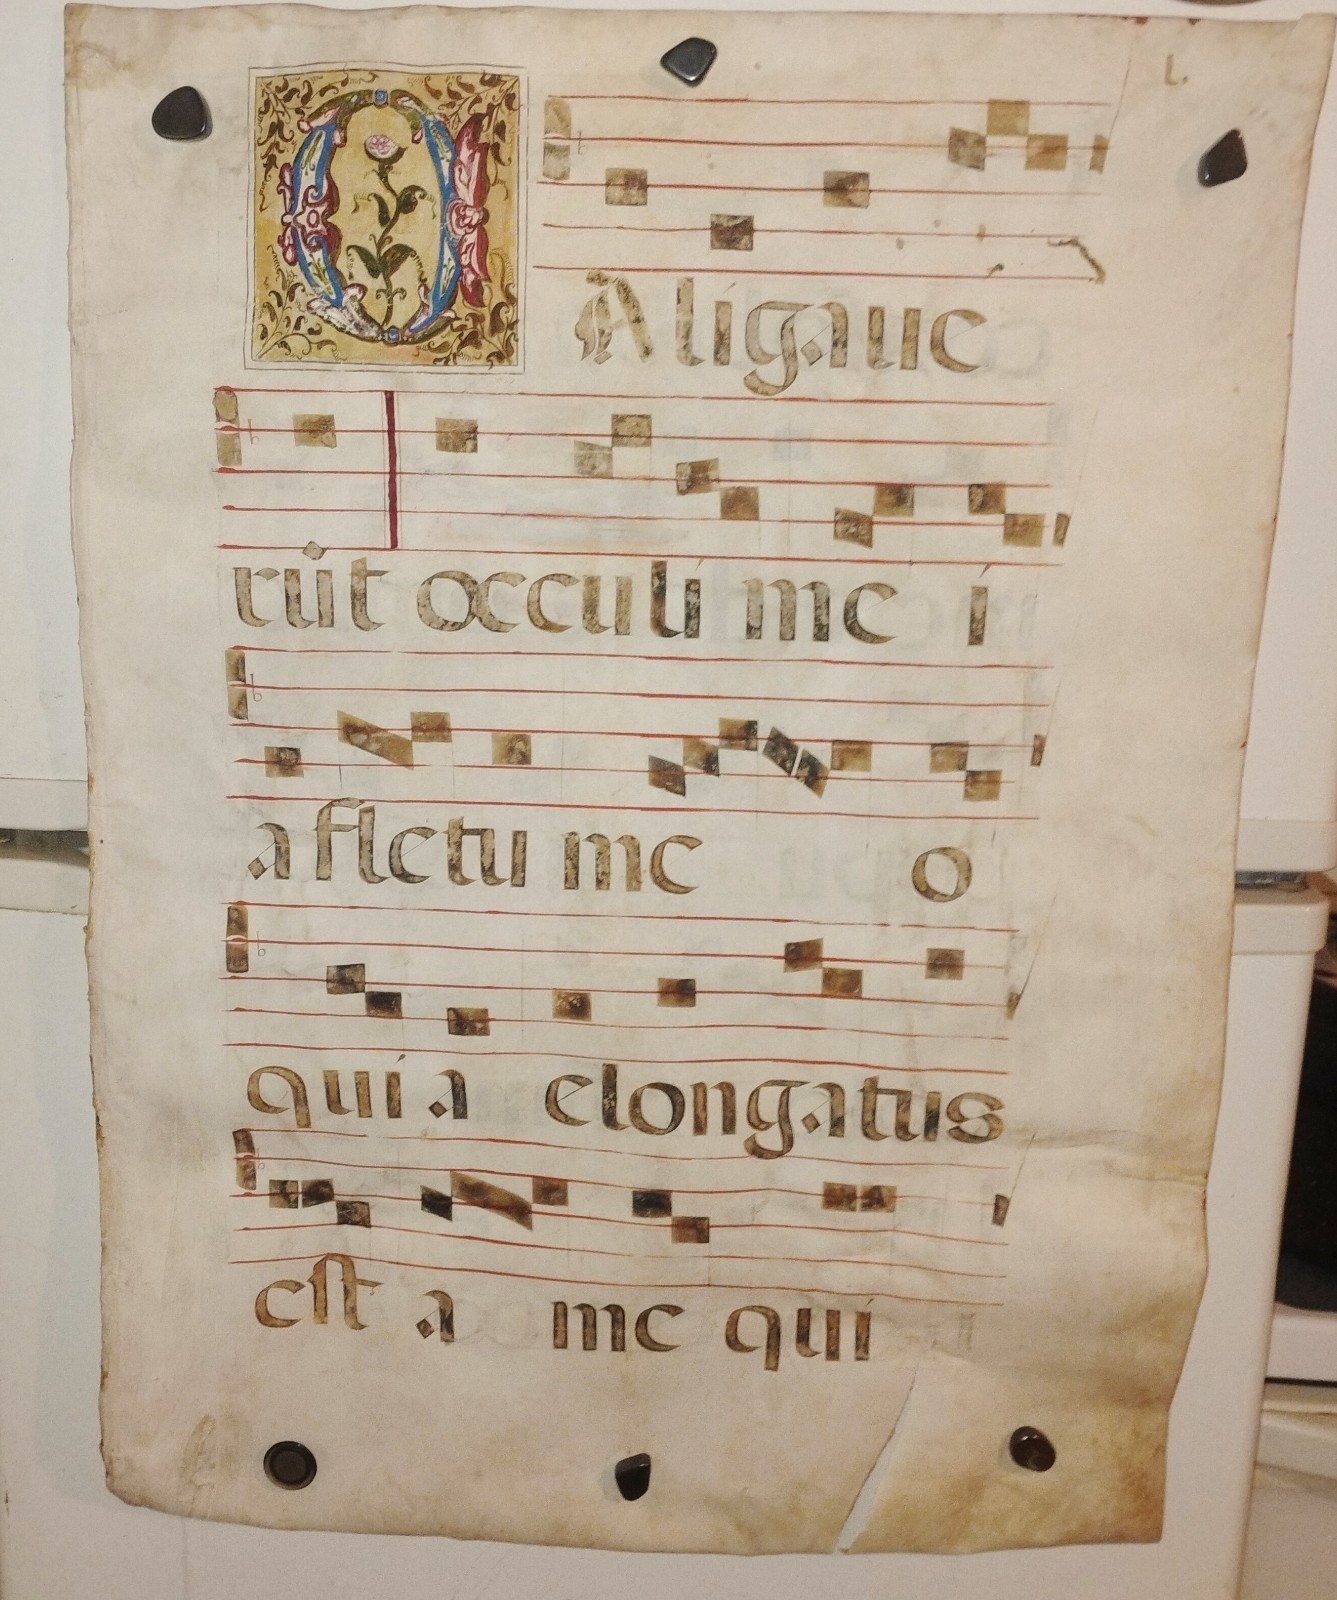 L.
CAligaue
rũt occuli mei
a fletu meo
quia elongatus
est a me qui